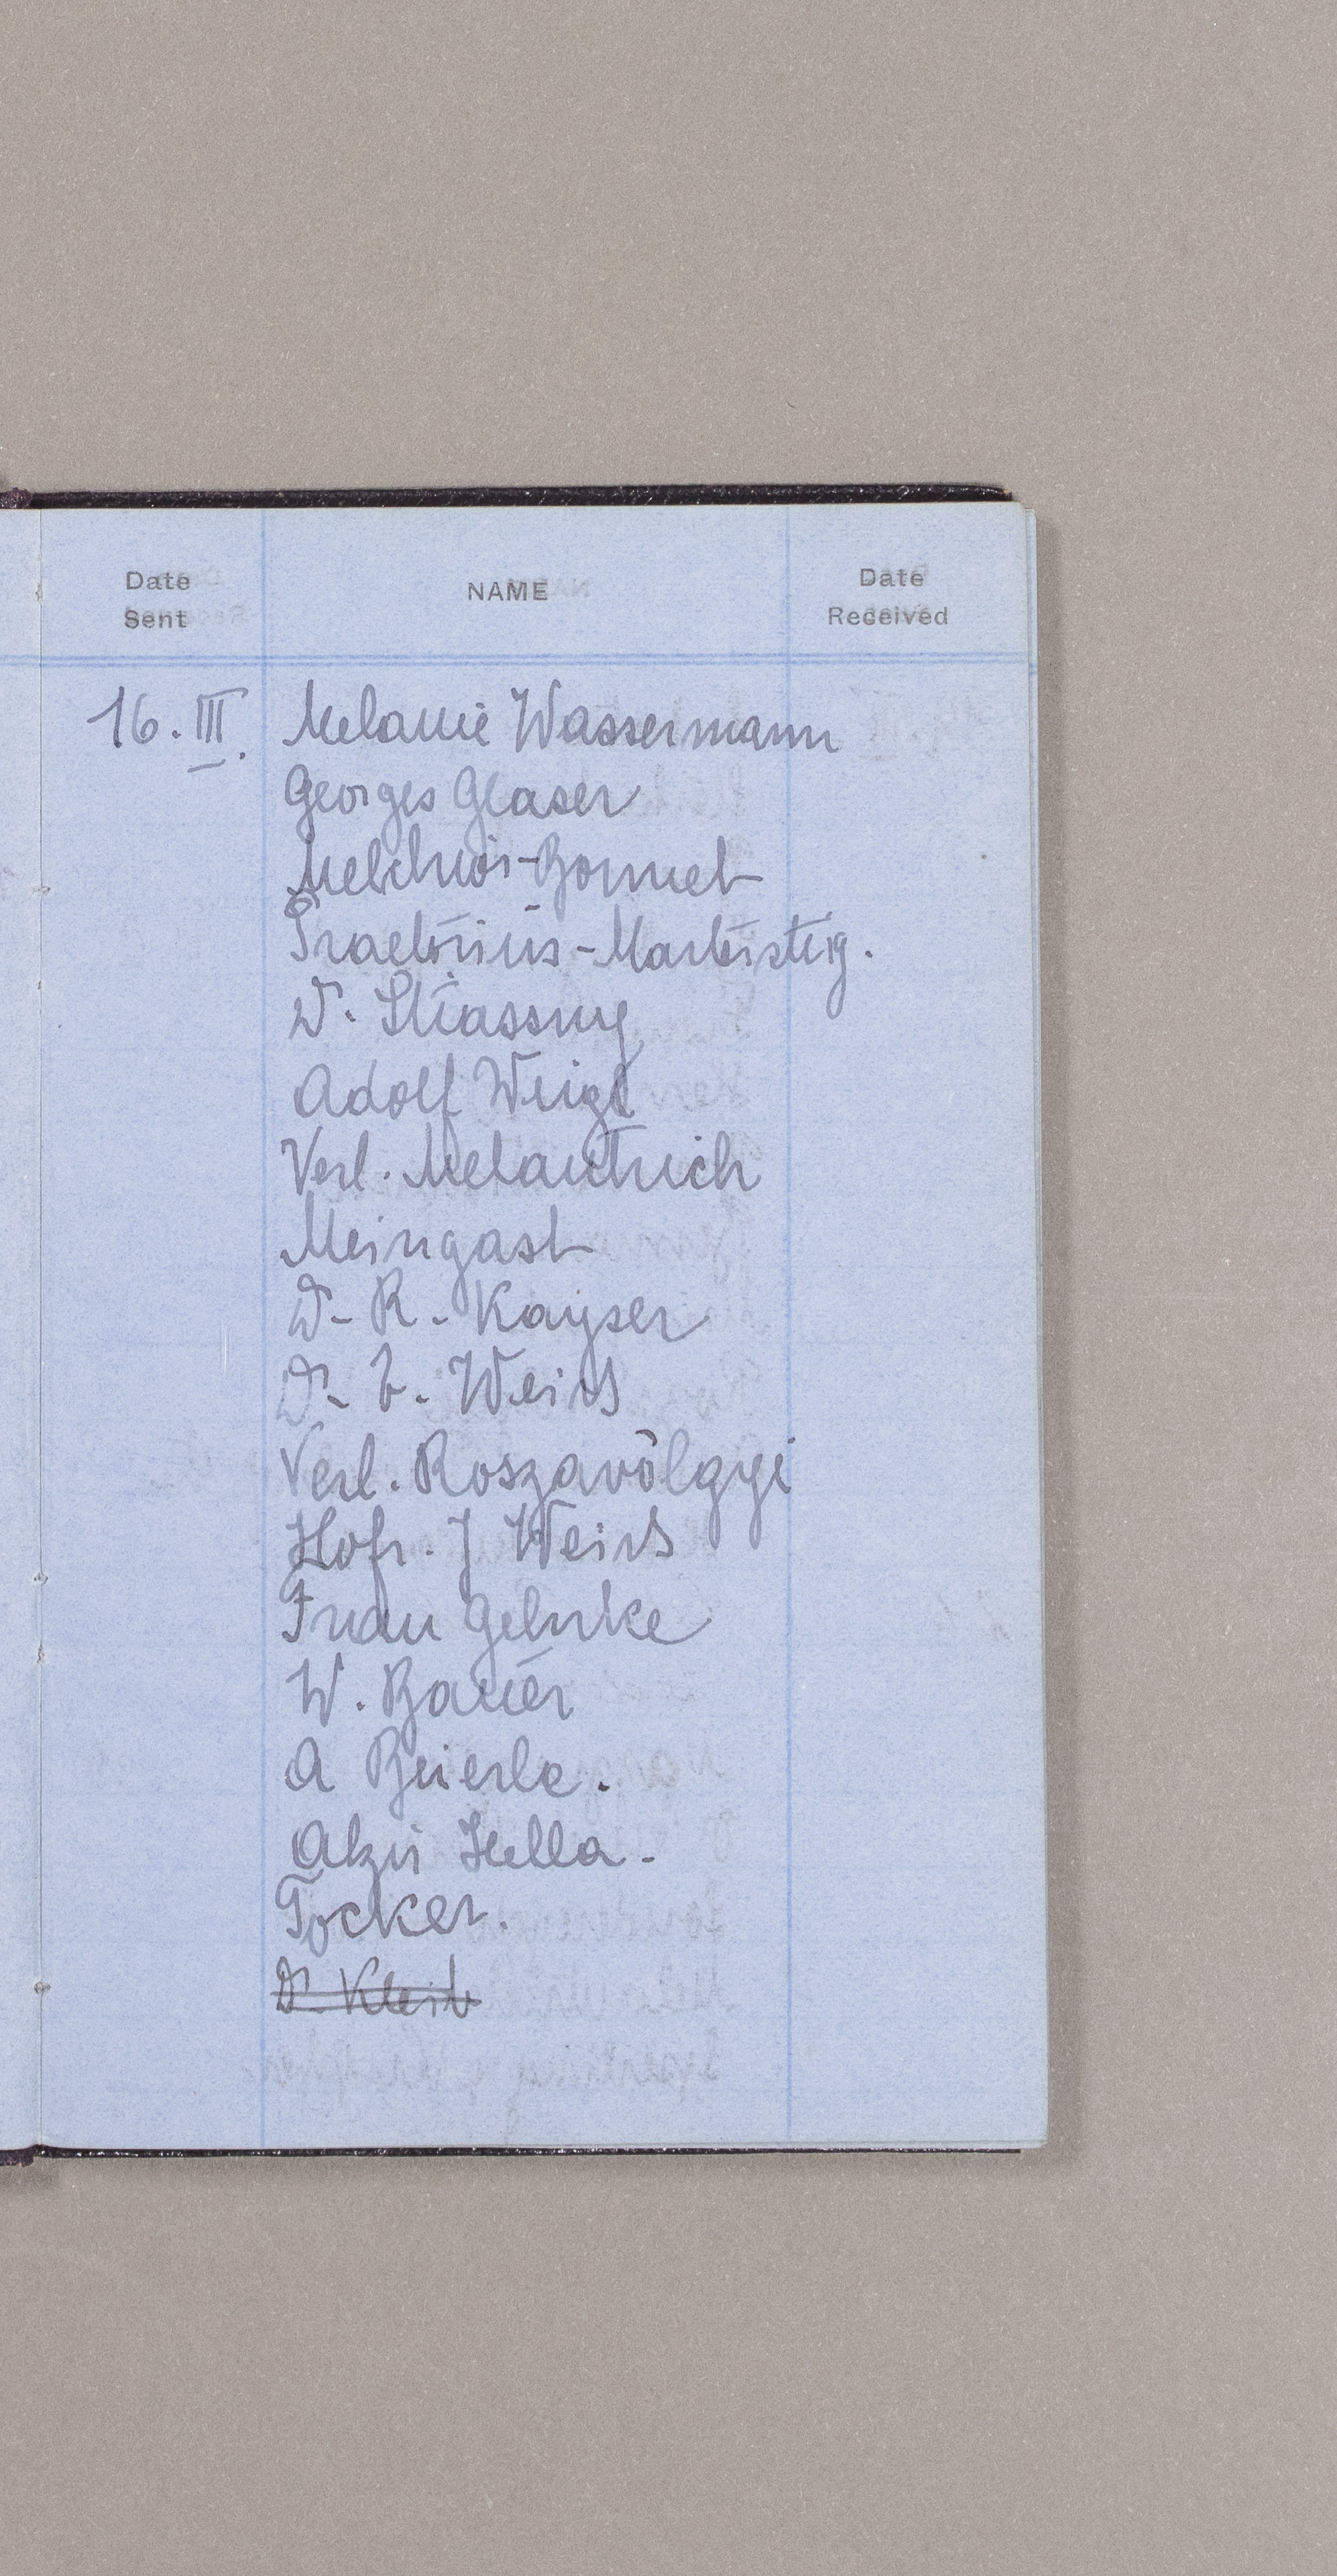 Date Sent
NAME
Date Received
16. III. Melanie Wassermann
Georges Glaser
Melchior-Bonnet
Praetorius-Martersteig.
Dr. Stiassny
Adolf Weigl
Verl. Melantrich
Meingast
Dr. R. Kayser
Dr. E. Weiss
Verl. Roszavölgyi
Hofr. J Weiss
Frau Gehrke
W. Bauer
A Beierle.
Alzir Hella.
Tocker.